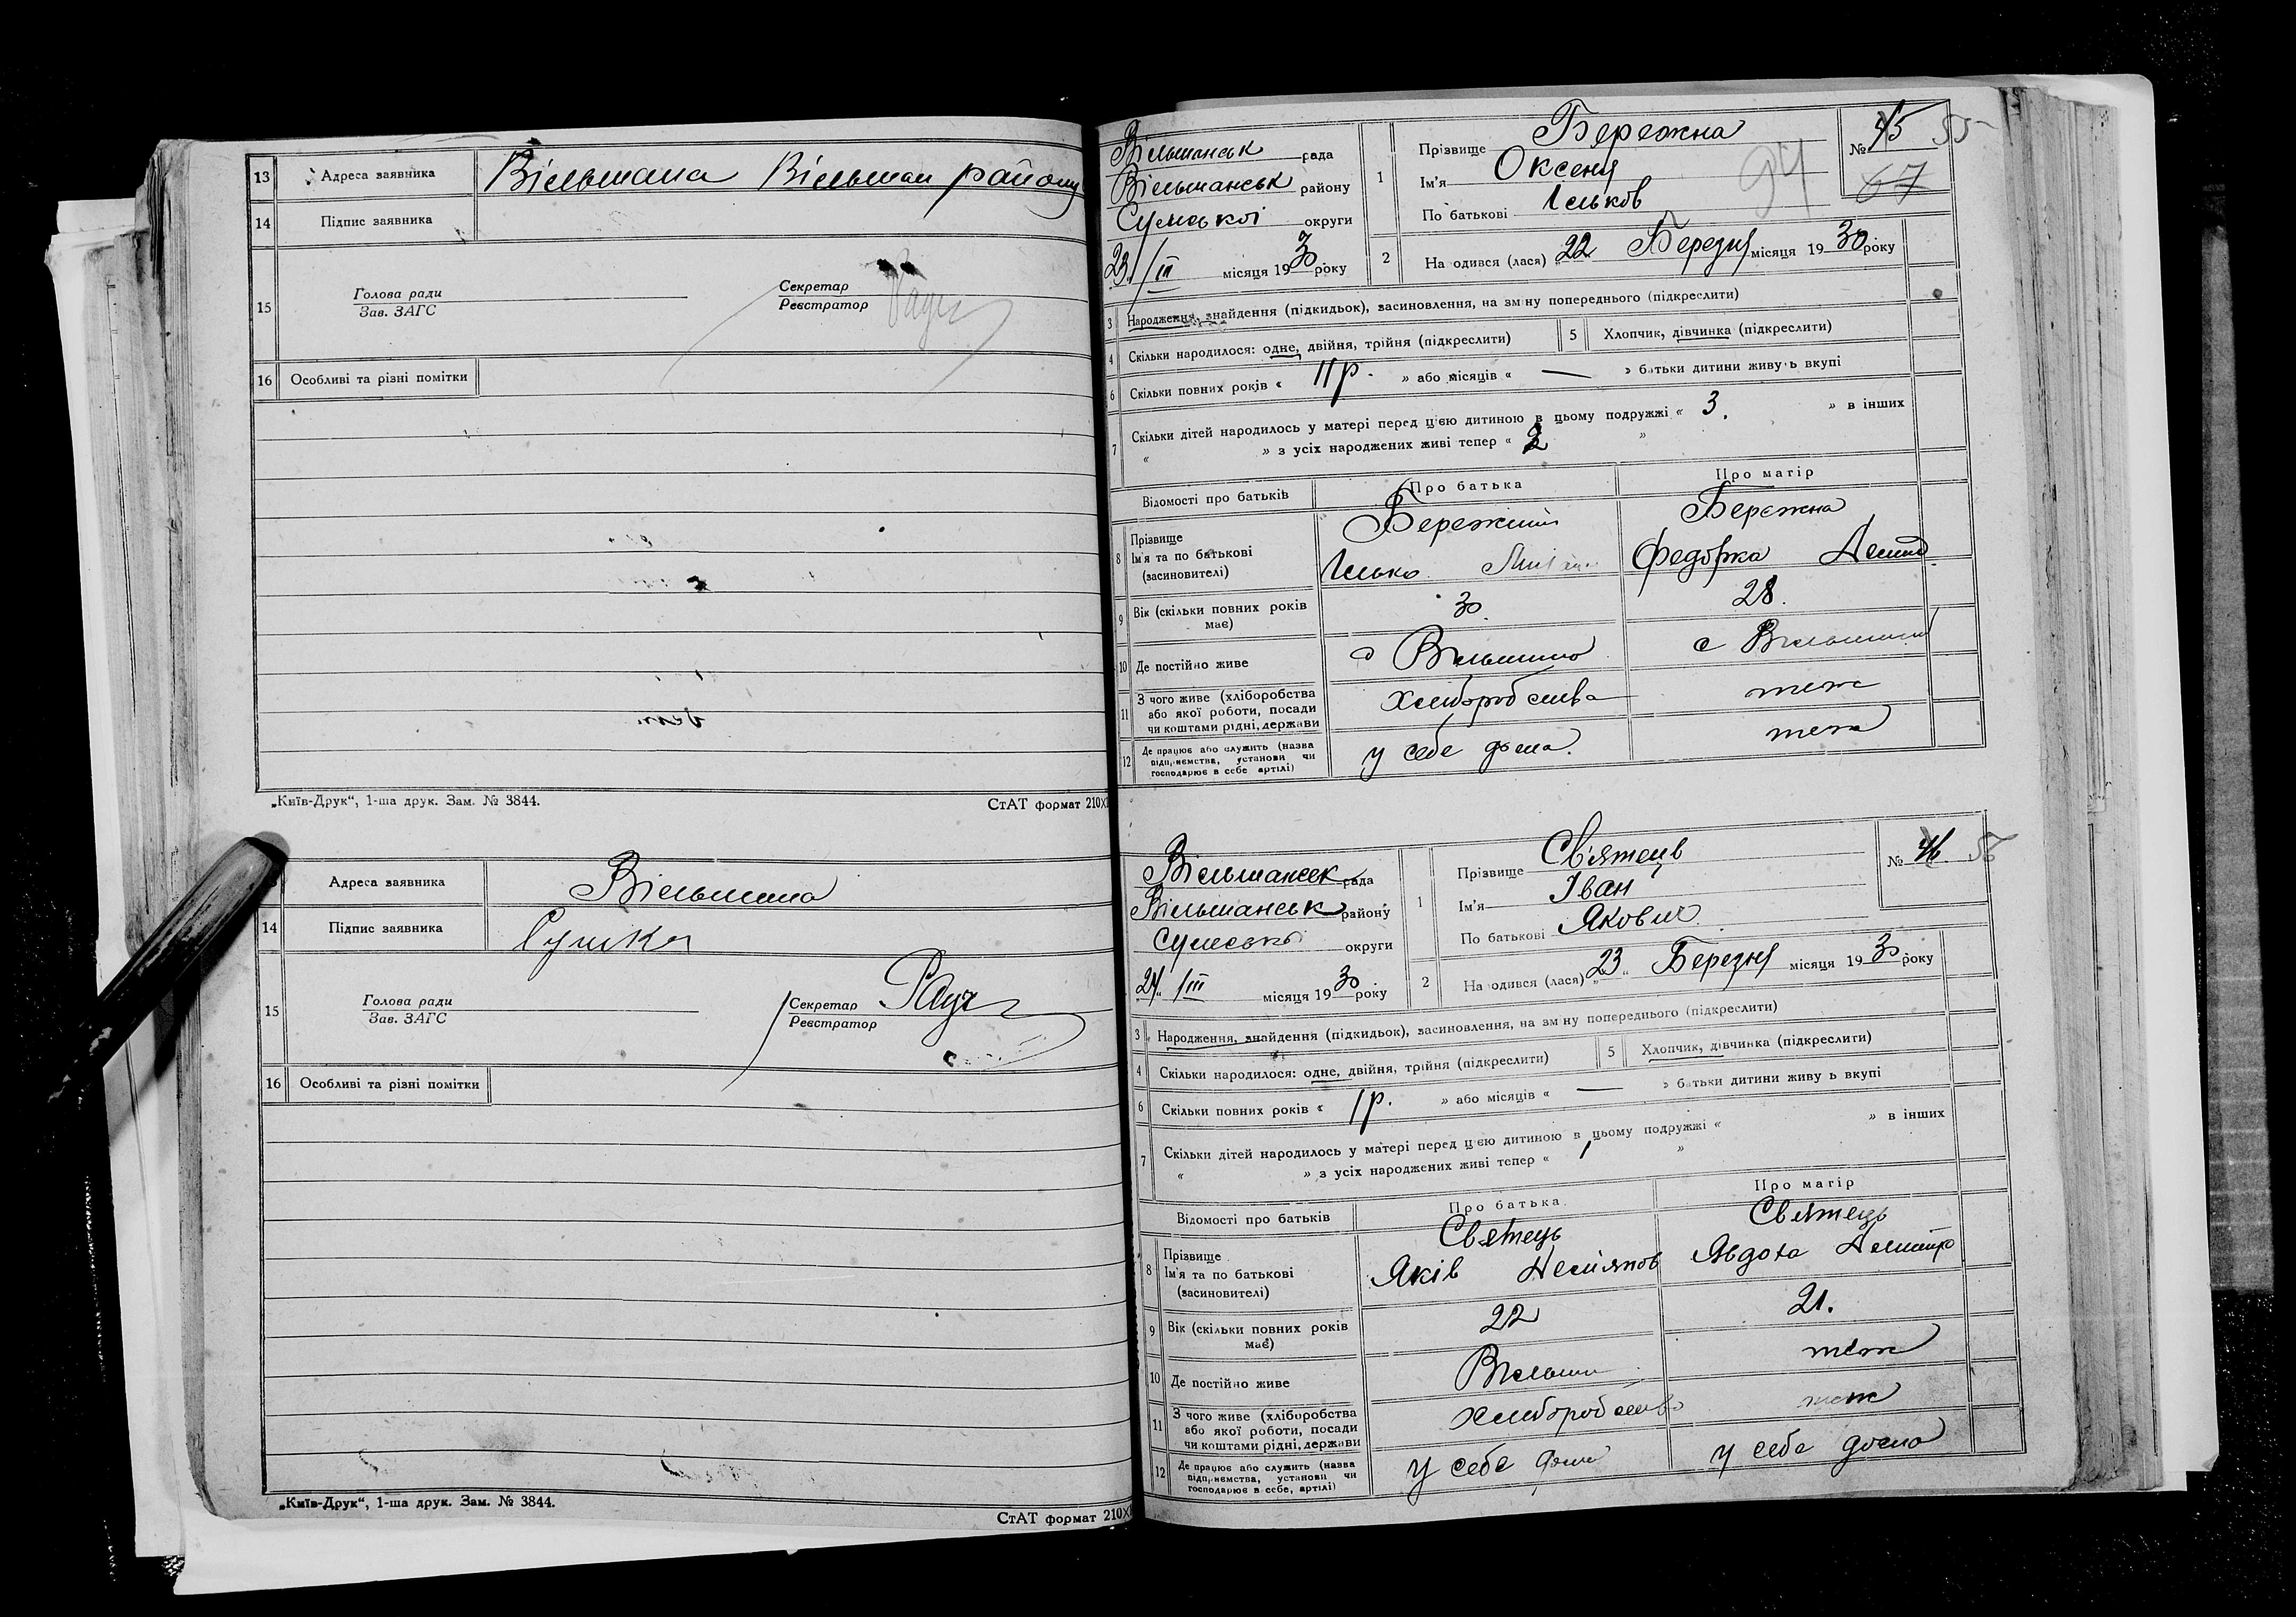 13 Адреса заявника Вільшана Вільшан району
14 Підпис заявника
15 Голова ради
Зав. ЗАГС
Секретар
Реєстратор
16 Особливі та різні помітки
„Київ-Друк“, 1-ша друк. Зам. № 3844.
СтАТ формат 210Х
Адреса заявника Вільшана
14 Підпис заявника
15 Голова ради
Зав. ЗАГС
Секретар
Реєстратор
16 Особливі та різні помітки
„Київ-Друк“, 1-ша друк. Зам. № 3844.
СтАТ формат 210Х
Вільшанськ рада
Вільшанськ району
Сумської округи
23/III місяця 1930 року
1 Прізвище Бережна
Ім'я Оксеня
По батькові Ільков
№ 45 55
67
94
2 Народився (лася) 22 Березня місяця 1930 року
3 Народження, знайдення (підкидьок), засиновлення, на зміну попереднього (підкреслити)
4 Скільки народилося: одне, двійня, трійня (підкреслити)
5 Хлопчик, дівчинка (підкреслити)
6 Скільки повних років « 11 р. » або місяців « — » батьки дитини живуть вкупі
7 Скільки дітей народилось у матері перед цією дитиною в цьому подружжі « 3. » в інших
« » з усіх народжених живі тепер « 2 »
Відомості про батьків Про батька Про матір
8 Прізвище Бережний Бережна
Ім'я та по батькові
(засиновителі) Ілько Федорка
9 Вік (скільки повних років має) 30 28.
10 Де постійно живе с Вільшана с Вільшана
11 З чого живе (хліборобства або якої роботи, посади чи коштами рідні, держави хліборобства теж
12 Де працює або служить (назва підприємства, установи чи господарює в себе артілі) у себе дома. теж
Вільшанськ рада
Вільшанськ району
Сумської округи
24/III місяця 1930 року
1 Прізвище Св'ятець
Ім'я Іван
По батькові Якович
№ 46 56
2 Народився (лася) 23 Березня місяця 1930 року
3 Народження, знайдення (підкидьок), засиновлення, на зміну попереднього (підкреслити)
4 Скільки народилося: одне, двійня, трійня (підкреслити)
5 Хлопчик, дівчинка (підкреслити)
6 Скільки повних років « 1 р. » або місяців « — » батьки дитини живуть вкупі
7 Скільки дітей народилось у матері перед цією дитиною в цьому подружжі « » в інших
« » з усіх народжених живі тепер « 1 »
Відомості про батьків Про батька Про матір
8 Прізвище Святець Святець
Ім'я та по батькові
(засиновителі) Яків Дем'янов Явдоха
9 Вік (скільки повних років має) 22 21.
10 Де постійно живе Вільшан теж
11 З чого живе (хліборобства або якої роботи, посади чи коштами рідні, держави хліборобства теж
12 Де працює або служить (назва підприємства, установи чи господарює в себе, артілі) у себе дома у себе дома